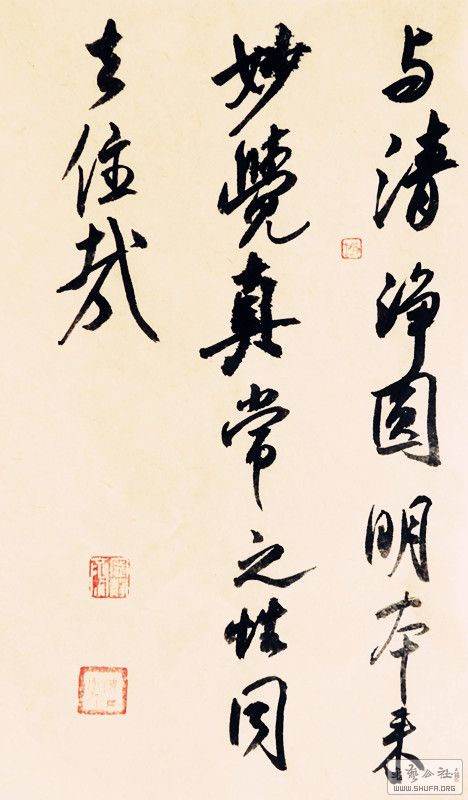 与清净圆明本来
妙覺真常之性同
去住哉
书艺公社
WWW.SHUFA.ORG